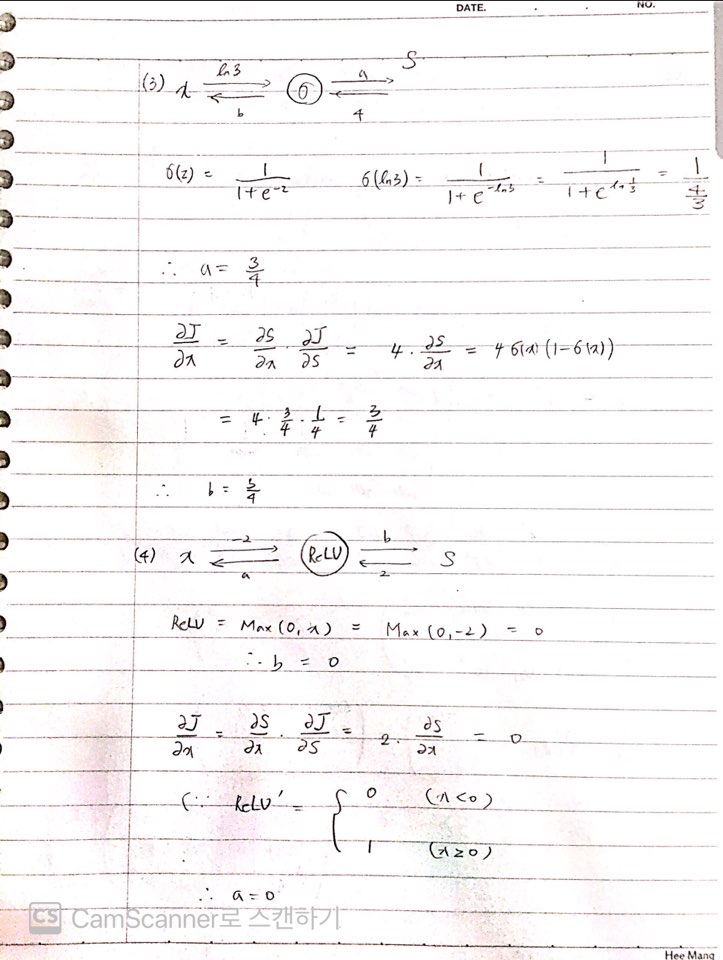 DATE. . . NO.
(3) x ln3 → ← b σ a → ← 4 S
σ(z) = 1/(1+e^-z) σ(ln3) = 1/(1+e^-ln3) = 1/(1+e^ln 1/3) = 1/(4/3)
∴ a = 3/4
∂J/∂x = ∂S/∂x · ∂J/∂S = 4 · ∂S/∂x = 4 σ(x) (1-σ(x))
= 4 · 3/4 · 1/4 = 3/4
∴ b = 3/4
(4) x -2 → ← a ReLU b → ← 2 S
ReLU = Max(0, x) = Max(0, -2) = 0
∴ b = 0
∂J/∂x = ∂S/∂x · ∂J/∂S = 2 · ∂S/∂x = 0
(∵ ReLU' = { 0 (x<0)
1 (x≥0)
∴ a = 0
CS CamScanner로 스캔하기
Hee Mang